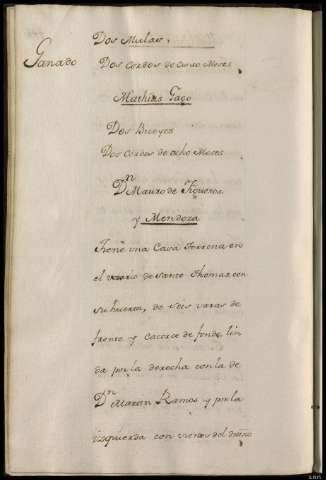 Dos Mulas.
Ganado Dos Cerdos de cinco Meses
Mathias Gago
Dos Bueyes
Dos Cerdos de ocho Meses
Dn Mauro de Figueroa
y Mendoza
Tiene una Casa Terrena en
el varrio de Santo Thomas con
su huerto, de seis varas de
frente y catorce de fondo, lin
da por la derecha con la de
Dn Martin Ramos y por la
izquierda con vienes del dicho